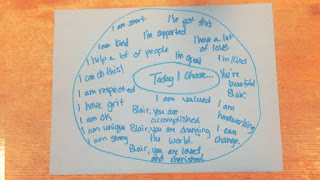 I am smart
I've got this
I am kind
I'm supported
I have a lot
of love
I help a lot of people
I'm great
I'm kind
I can do this!
Today I choose...
You're
beautiful
Blair.
I am respected
I have grit
I am valued
I am
hardworking
I am OK
Blair, you are
accomplished.
I can
change.
I am unique
Blair, you are changing
the world.
I am strong
Blair, you are loved
and cherished.